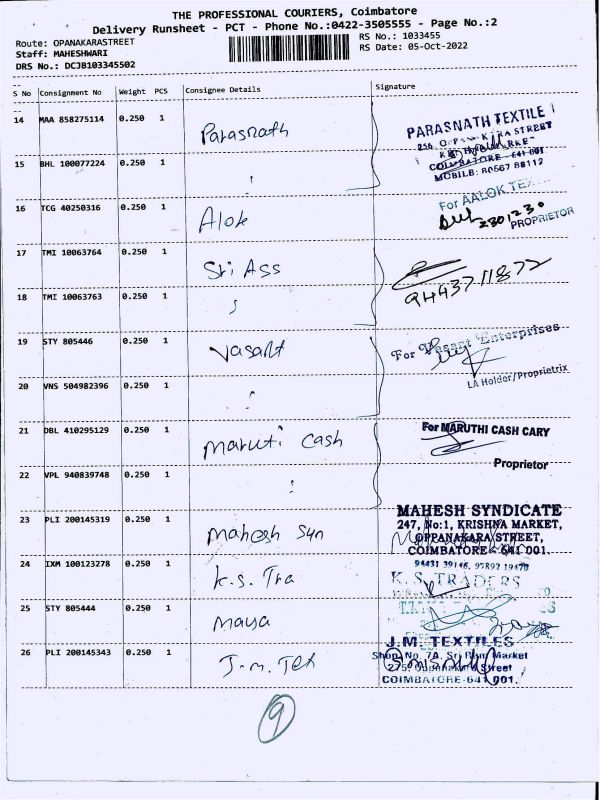 THE PROFESSIONAL COURIERS, Coimbatore
Delivery Runsheet - PCT - Phone No.:0422-3505555 - Page No.:2
Route: OPANAKARASTREET
RS No.: 1033455
Staff: MAHESHWARI
RS Date: 05-Oct-2022
DRS No.: DCJB103345502
S No Consignment No Weight PCS Consignee Details Signature
14 MAA 858275114 0.250 1 Parasnath
PARASNATH TEXTILE
256 STREET
COIMBATORE - 641 001
MOBILE: 80567 88112
15 BHL 100077224 0.250 1 "
16 TCG 40250316 0.250 1 Alok
For AALOK TEX
2301230
PROPRIETOR
17 TMI 10063764 0.250 1 Sri Ass
9443711872
18 TMI 10063763 0.250 1 "
19 STY 805446 0.250 1 Vasant
For Vasant Enterprises
LA Holder/Proprietrix
20 VNS 504982396 0.250 1 "
21 DBL 410295129 0.250 1 Maruti Cash
For MARUTHI CASH CARY
Proprietor
22 VPL 940839748 0.250 1 "
23 PLI 200145319 0.250 1 Mahesh Syn
MAHESH SYNDICATE
247, No:1, KRISHNA MARKET,
OPPANAKARA STREET,
COIMBATORE - 641 001.
94431 39146, 97892 19470
24 IXM 100123278 0.250 1 K.S. Tra
K. S. TRADERS
25 STY 805444 0.250 1 Maya
26 PLI 200145343 0.250 1 J.M. Tex
J.M. TEXTILES
Shop No. 7A, Sri Ram Market
275, Oppanakara Street
COIMBATORE-641 001.
9